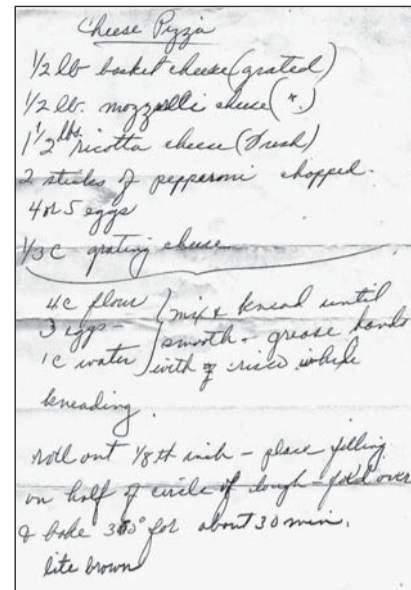 Cheese Pizza
1/2 lb basket cheese (grated)
1/2 lb. mozzarelli cheese (".)
1 1/2 lbs. ricotta cheese (fresh)
2 sticks of pepparoni chopped.
4 or 5 eggs
1/3 c grating cheese
4c flour } mix & knead until
3 eggs - } smooth - grease hands
1c water } with crisco while
kneading.
roll out 1/8th inch - place filling
on half of circle of dough - fold over
& bake for about 30 min.
lite brown